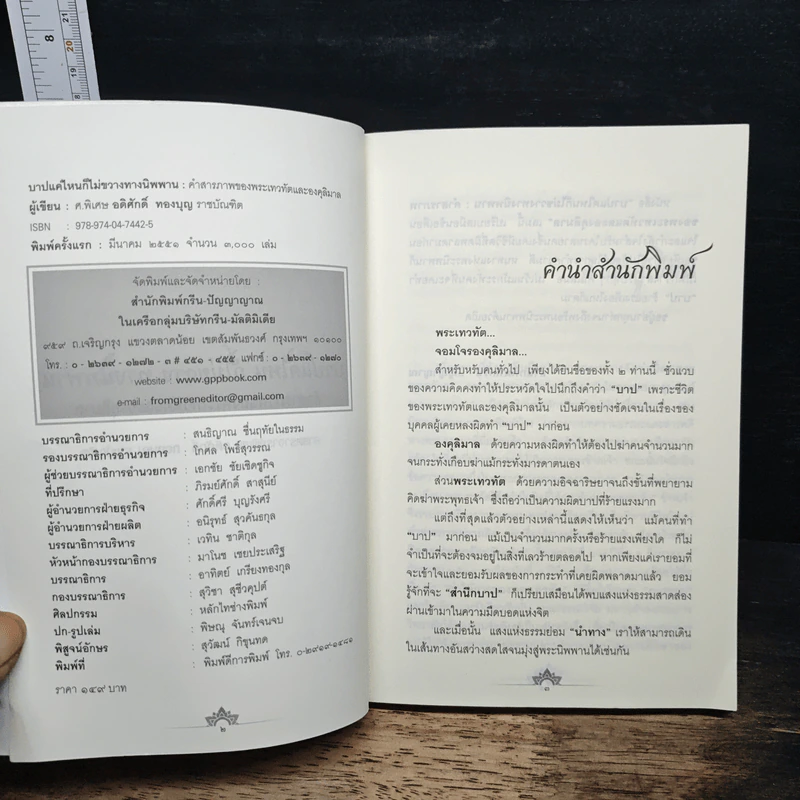 บาปแค่ไหนก็ไม่ขวางทางนิพพาน : คำสารภาพของพระเทวทัตและองคุลิมาล
ผู้เขียน : ศ.พิเศษ อดิศักดิ์ ทองบุญ ราชบัณฑิต
ISBN : 978-974-04-7442-5
พิมพ์ครั้งแรก : มีนาคม ๒๕๕๑ จำนวน ๓,๐๐๐ เล่ม
จัดพิมพ์และจัดจำหน่ายโดย :
สำนักพิมพ์กรีน-ปัญญาญาณ
ในเครือกลุ่มบริษัทกรีน-มัลติมีเดีย
๙๕๙ ถ.เจริญกรุง แขวงตลาดน้อย เขตสัมพันธวงศ์ กรุงเทพฯ ๑๐๑๐๐
โทร. : ๐ - ๒๖๓๙ - ๑๒๗๒ - ๓ # ๔๕๑ - ๔๕๕ แฟกซ์ : ๐ - ๒๖๓๙ - ๑๒๗๐
website : www.gppbook.com
e-mail : fromgreeneditor@gmail.com
บรรณาธิการอำนวยการ : สนธิญาณ ชื่นฤทัยในธรรม
รองบรรณาธิการอำนวยการ : โกศล โพธิ์สุวรรณ
ผู้ช่วยบรรณาธิการอำนวยการ : เอกชัย ชัยเชิดชูกิจ
ที่ปรึกษา : ภิรมย์ศักดิ์ สาสุนีย์
ผู้อำนวยการฝ่ายธุรกิจ : ศักดิ์ศรี บุญรังศรี
ผู้อำนวยการฝ่ายผลิต : อนิรุทธ์ สุวคันธกุล
บรรณาธิการบริหาร : เวทิน ชาติกุล
หัวหน้ากองบรรณาธิการ : มาโนช เชยประเสริฐ
บรรณาธิการ : อาทิตย์ เกรียงทองกุล
กองบรรณาธิการ : สุวิชา สุชีวคุปต์
ศิลปกรรม : หลักไทช่างพิมพ์
ปก-รูปเล่ม : พิษณุ จันทร์เจนจบ
พิสูจน์อักษร : สุวัฒน์ กิขุนทด
พิมพ์ที่ : พิมพ์ดีการพิมพ์ โทร. ๐-๒๙๑๙-๑๔๘๑
ราคา ๑๔๙ บาท
๒
คำนำสำนักพิมพ์
พระเทวทัต...
จอมโจรองคุลิมาล...
สำหรับหรับคนทั่วไป เพียงได้ยินชื่อของทั้ง ๒ ท่านนี้ ชั่วแวบ
ของความคิดคงทำให้ประหวัดใจไปนึกถึงคำว่า “บาป” เพราะชีวิต
ของพระเทวทัตและองคุลิมาลนั้น เป็นตัวอย่างชัดเจนในเรื่องของ
บุคคลผู้เคยหลงผิดทำ “บาป” มาก่อน
องคุลิมาล ด้วยความหลงผิดทำให้ต้องไปฆ่าคนจำนวนมาก
จนกระทั่งเกือบฆ่าแม้กระทั่งมารดาตนเอง
ส่วนพระเทวทัต ด้วยความอิจฉาริษยาจนถึงขั้นที่พยายาม
คิดฆ่าพระพุทธเจ้า ซึ่งถือว่าเป็นความผิดบาปที่ร้ายแรงมาก
แต่ถึงที่สุดแล้วตัวอย่างเหล่านี้แสดงให้เห็นว่า แม้คนที่ทำ
“บาป” มาก่อน แม้เป็นจำนวนมากครั้งหรือร้ายแรงเพียงใด ก็ไม่
จำเป็นที่จะต้องจมอยู่ในสิ่งที่เลวร้ายตลอดไป หากเพียงแค่เรายอมที่
จะเข้าใจและยอมรับผลของการกระทำที่เคยผิดพลาดมาแล้ว ยอม
รู้จักที่จะ “สำนึกบาป” ก็เปรียบเสมือนได้พบแสงแห่งธรรมสาดส่อง
ผ่านเข้ามาในความมืดบอดแห่งจิต
และเมื่อนั้น แสงแห่งธรรมย่อม “นำทาง” เราให้สามารถเดิน
ในเส้นทางอันสว่างสดใสจนมุ่งสู่พระนิพพานได้เช่นกัน
๓
8
21
20
19